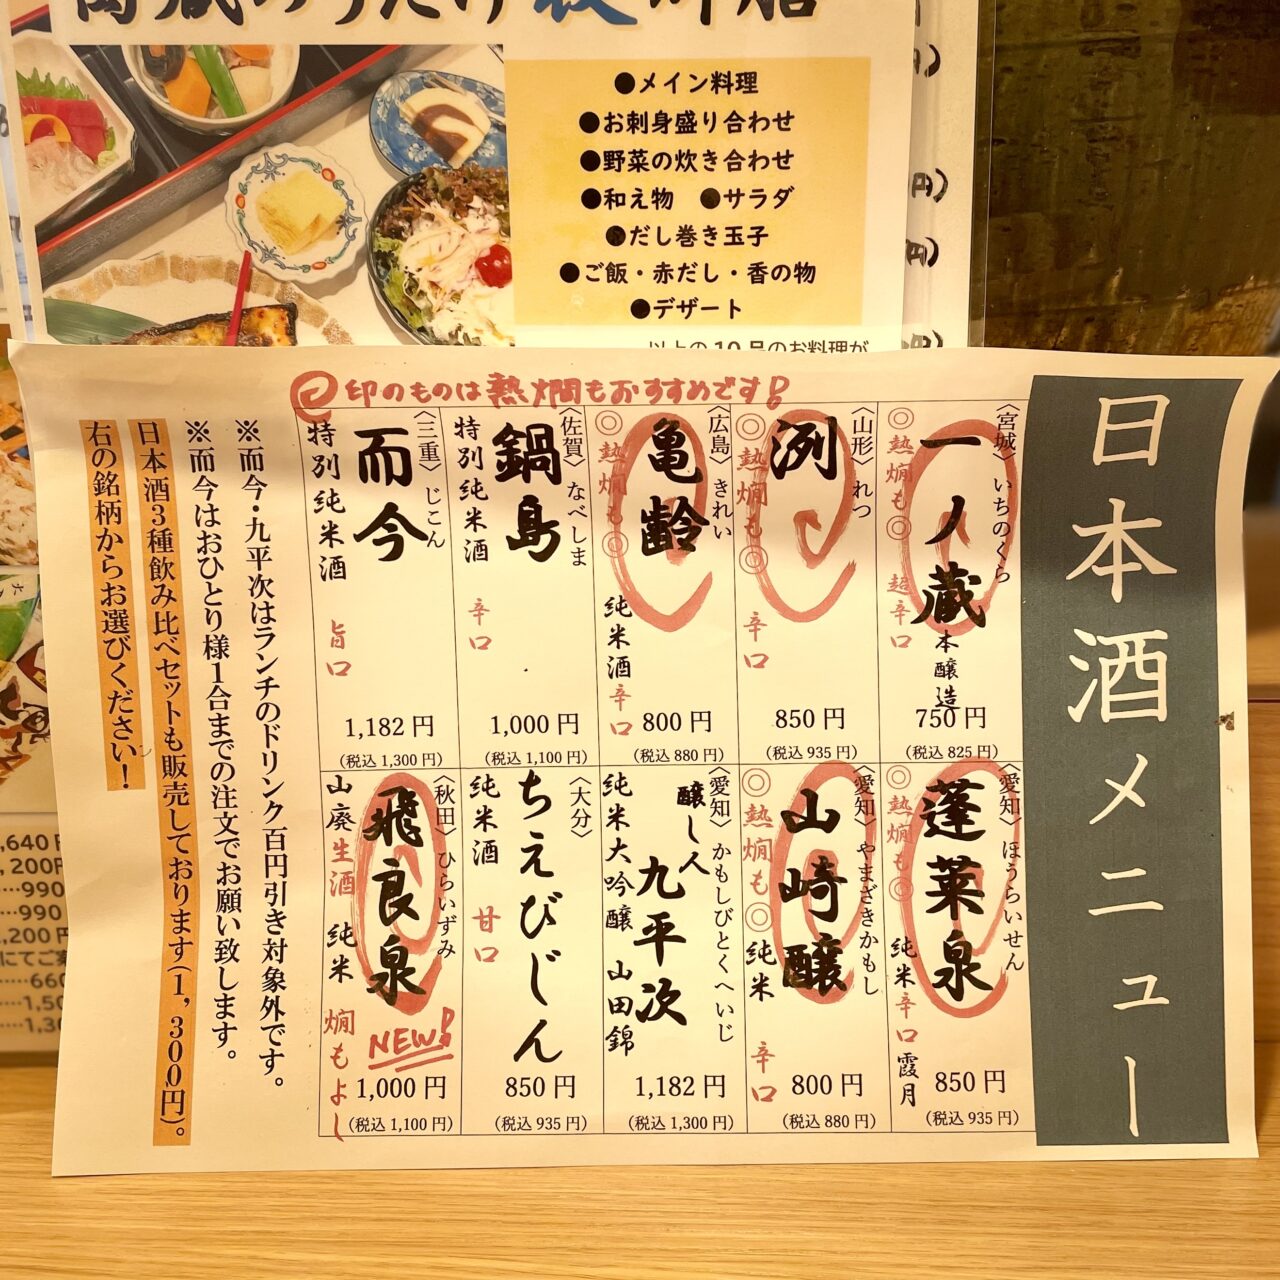 ●メイン料理
●お刺身盛り合わせ
●野菜の炊き合わせ
●和え物 ●サラダ
●だし巻き玉子
●ご飯・赤だし・香の物
●デザート
以上の10品のお料理が
日本酒メニュー
印のものは熱燗もおすすめです!
〈宮城〉いちのくら
一ノ蔵 本醸造
◎熱燗も◎ 超辛口
750円
(税込 825円)
〈山形〉れつ
洌
◎熱燗も◎ 辛口
850円
(税込 935円)
〈広島〉きれい
亀齢
純米酒
◎熱燗も◎ 辛口
800円
(税込 880円)
〈佐賀〉なべしま
鍋島
特別純米酒 辛口
1,000円
(税込 1,100円)
〈三重〉じこん
而今
特別純米酒 旨口
1,182円
(税込 1,300円)
〈愛知〉ほうらいせん
蓬莱泉
純米 辛口 霞月
◎熱燗も◎
850円
(税込 935円)
〈愛知〉やまざきかもし
山崎醸
純米 辛口
◎熱燗も◎
800円
(税込 880円)
〈愛知〉かもしびとくへいじ
醸し人
九平次
純米大吟醸 山田錦
1,182円
(税込 1,300円)
〈大分〉
ちえびじん
純米酒 甘口
850円
(税込 935円)
〈秋田〉ひらいずみ
飛良泉
山廃生酒 純米 燗もよし
NEW!
1,000円
(税込 1,100円)
※而今・九平次はランチのドリンク百円引き対象外です。
※而今はおひとり様1合までの注文でお願い致します。
日本酒3種飲み比べセットも販売しております(1,300円)。
右の銘柄からお選びください!
,640円
,200円
990
990
,200円
660
1,50
1,30